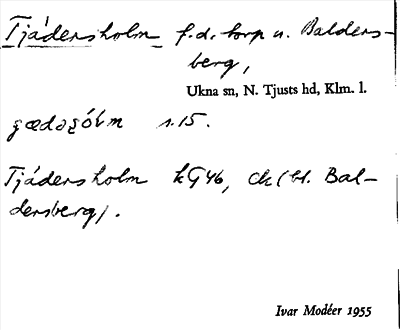 Tjádersholm f.d. torp u. Balders-
berg,
Ukna sn, N. Tjusts hd, Klm. l.
s.15.
Tjádersholm kG46, Ck (bl. Bal-
dersberg).
Ivar Modéer 1955